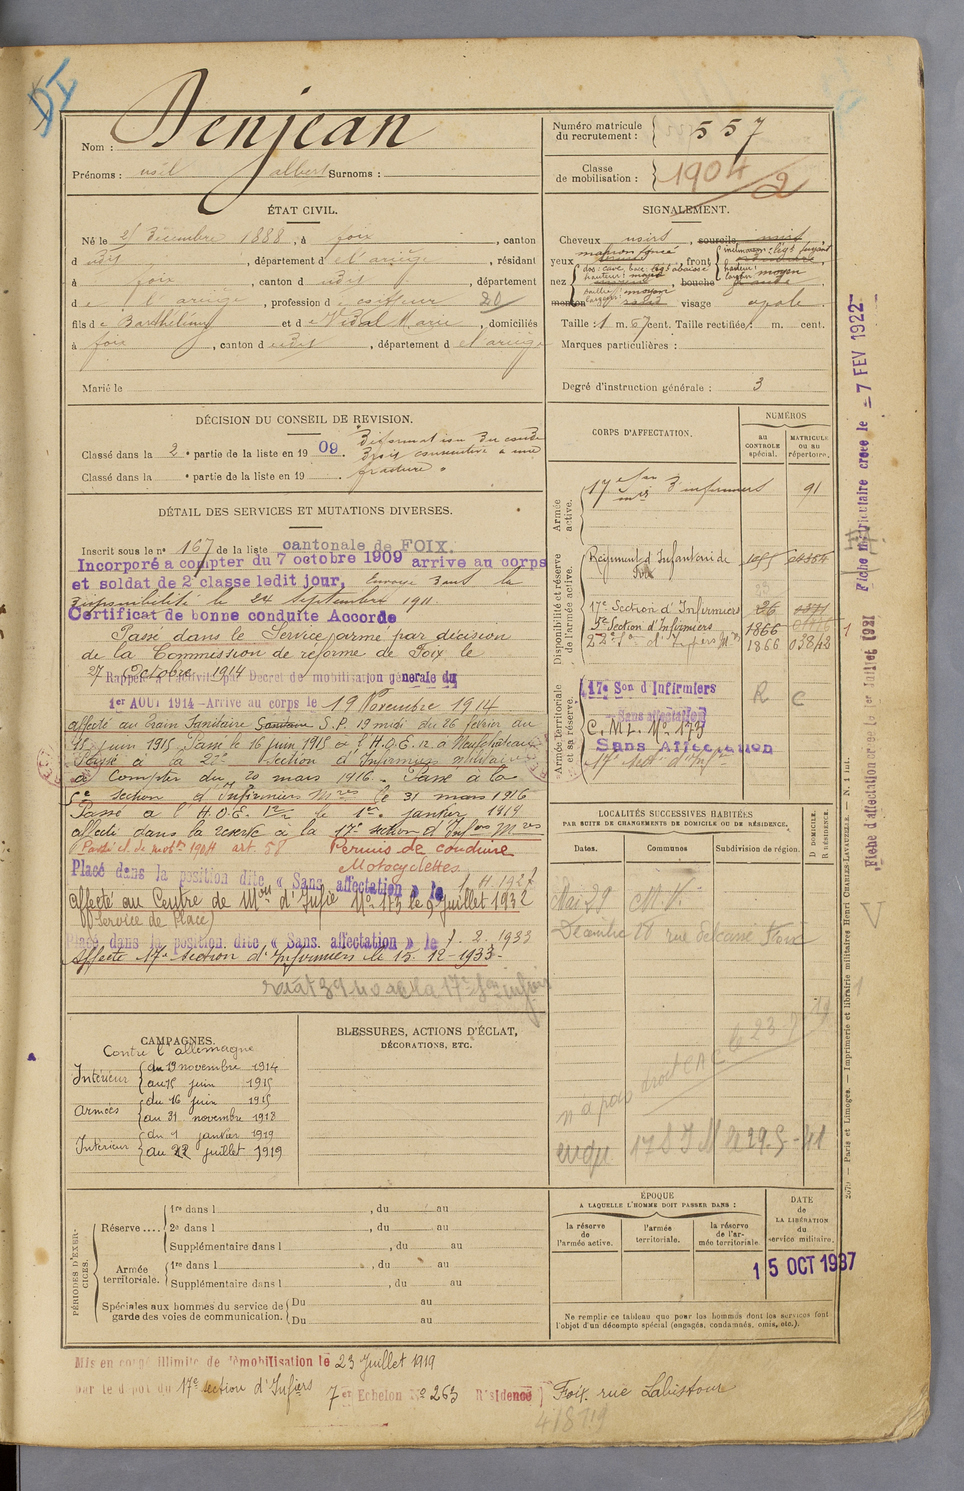 DI
Nom : Denjean
Prénoms : noël albert Surnoms :
Numéro matricule du recrutement : 557
Classe de mobilisation : 1904/2
ÉTAT CIVIL.
Né le 25 Décembre 1888, à foix, canton
d udit, département d e l'ariège, résidant
à foix, canton d udit, département
d e l'ariège, profession d e coiffeur 20
fils d e Barthélémy et d e Vidal Marie, domiciliés
à foix, canton d udit, département d e l'ariège
Marié le
SIGNALEMENT.
Cheveux noirs, sourcils noirs
yeux marron foncé, front inclinaison : légt fuyant
hauteur : largeur moyen
nez dos : cave, base légt abaissée
hauteur : moyen bouche grande
saillie moyen
largeur
menton visage ovale
Taille : 1 m. 67 cent. Taille rectifiée : m. cent.
Marques particulières :
Degré d'instruction générale : 3
DÉCISION DU CONSEIL DE REVISION.
Classé dans la 2e partie de la liste en 1909. Déformation du coude
droit consécutive à une
fracture.
Classé dans la e partie de la liste en 19
DÉTAIL DES SERVICES ET MUTATIONS DIVERSES.
Inscrit sous le n° 167 de la liste cantonale de FOIX.
Incorporé a compter du 7 octobre 1909 arrive au corps
et soldat de 2e classe ledit jour, Envoyé dans la
disponibilité le 24 septembre 1911.
Certificat de bonne conduite Accorde
Passé dans le Service armé par décision
de la Commission de réforme de Foix le
27 Octobre 1914 Rappelé à l'activité par Decret de mobilisation generale du
1er AOUT 1914 - Arrive au corps le 19 Novembre 1914
affecté au train Sanitaire Sanitaire S.P. 19 midi du 26 février au
15 juin 1915 Passé le 16 juin 1915 à l'H.O.E. 12 à Neufchâteau
Passé à la 22e Section d'Infirmiers militaires
à compter du 20 mars 1916. Passé à la
5e section d'Infirmiers Mres le 31 mars 1916
Passé à l'H.O.E. le 1er janvier 1919
affecté dans la réserve à la 17e section d'Infers Mres
Passé cl. de mobon 1904 art. 58 Permis de conduire
Motocyclettes
Placé dans la position dite « Sans affectation » le 1.11.1927
affecté au Centre de Mon d'Infie N° 173 le 9 Juillet 1932
(Service de Place)
Placé dans la position dite « Sans affectation » le 1.2.1933
Affecté 17e section d'Infirmiers le 15-12-1933-
CORPS D'AFFECTATION.
NUMÉROS
au CONTROLE spécial.
MATRICULE ou au répertoire.
Armée active.
17e Son d'infirmiers 91
Disponibilité et réserve de l'armée active.
Régiment d'Infanterie de Foix
17e Section d'Infirmiers 26
5e Section d'Infirmiers 1866
22e Son d'Infiers Mres 1866 03843
Armée territoriale et sa réserve.
17e Son d'Infirmiers R C
Sans affectation
C. M. I. N° 173
Sans Affectation
17e Sect. d'Infre
LOCALITÉS SUCCESSIVES HABITÉES
PAR SUITE DE CHANGEMENTS DE DOMICILE OU DE RÉSIDENCE.
Dates. Communes Subdivision de région. D. DOMICILE. R. RÉSIDENCE.
Mai 29
18 rue Delcassé Foix
n'a pas droit C A C le 23-
CAMPAGNES.
Contre l'allemagne
Intérieur du 19 novembre 1914
au 15 juin 1915
Armées du 16 juin 1915
au 31 novembre 1918
Intérieur du 1 janvier 1919
au 22 juillet 1919
BLESSURES, ACTIONS D'ÉCLAT,
DÉCORATIONS, ETC.
PÉRIODES D'EXERCICES.
Réserve .... 1re dans l , du au
2e dans l , du au
Supplémentaire dans l , du au
Armée territoriale. 1re dans l , du au
Supplémentaire dans l , du au
Spéciales aux hommes du service de garde des voies de communication. Du au
Du au
ÉPOQUE
A LAQUELLE L'HOMME DOIT PASSER DANS :
la réserve de l'armée active.
l'armée territoriale.
la réserve de l'armée territoriale
DATE de LA LIBÉRATION du service militaire.
15 OCT 1937
Ne remplir ce tableau que pour les hommes dont les services font
l'objet d'un décompte spécial (engagés, condamnés, omis, etc.).
Mis en congé illimité de démobilisation le 23 Juillet 1919
par le dépot du 17e section d'Infiers 7en Echelon N° 263 Résidence Foix rue Labistour
Fiche matriculaire créée le - 7 FEV 1922
Fiche d'affectation créée le 1er Juillet 1931
2079 — Paris et Limoges. — Imprimerie et librairie militaires Henri CHARLES-LAVAUZELLE. — N. 1 int.